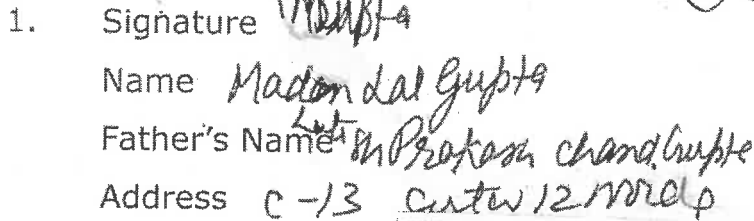 1. Signature MDGupta
Name Madan Lal Gupta
Father's Name Late Sh Prakash chand Gupta
Address C-13